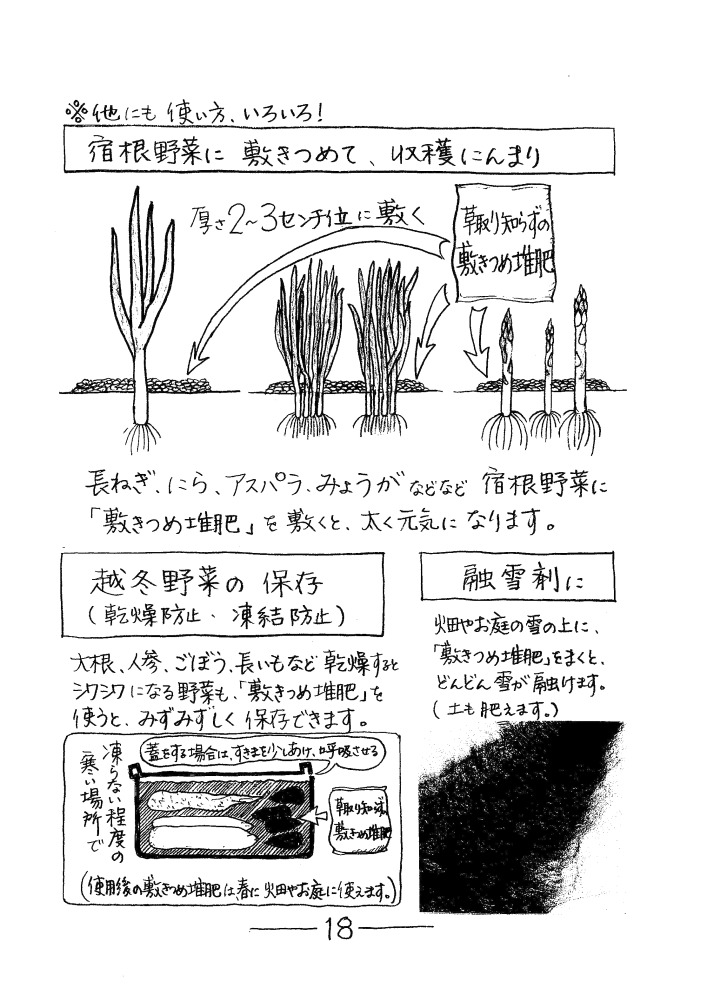 ※他にも使い方、いろいろ!
宿根野菜に敷きつめて、収穫にんまり
厚さ2~3センチ位に敷く
草取り知らずの
敷きつめ堆肥
長ねぎ、にら、アスパラ、みょうがなどなど宿根野菜に
「敷きつめ堆肥」を敷くと、太く元気になります。
越冬野菜の保存
(乾燥防止・凍結防止)
大根、人参、ごぼう、長いもなど乾燥すると
シワシワになる野菜も、「敷きつめ堆肥」を
使うと、みずみずしく保存できます。
凍らない程度の
寒い場所で
蓋をする場合は、すきまを少しあけ、呼吸させる
草取り知らずの
敷きつめ堆肥
(使用後の敷きつめ堆肥は、春に畑やお庭に使えます。)
融雪剤に
畑やお庭の雪の上に、
「敷きつめ堆肥」をまくと、
どんどん雪が融けます。
(土も肥えます。)
18